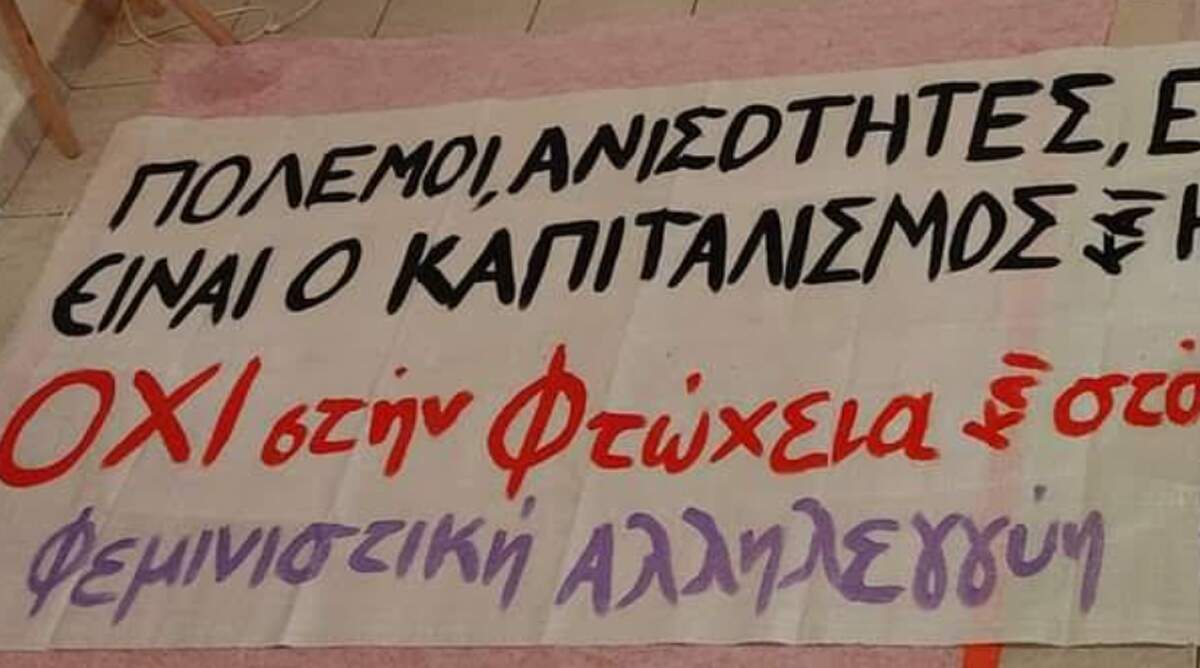 ΠΟΛΕΜΟΙ, ΑΝΙΣΟΤΗΤΕΣ, Ε
ΕΙΝΑΙ Ο ΚΑΠΙΤΑΛΙΣΜΟΣ και
ΟΧΙ στήν Φτώχεια και στό
Φεμινιστική Αλληλεγγύη